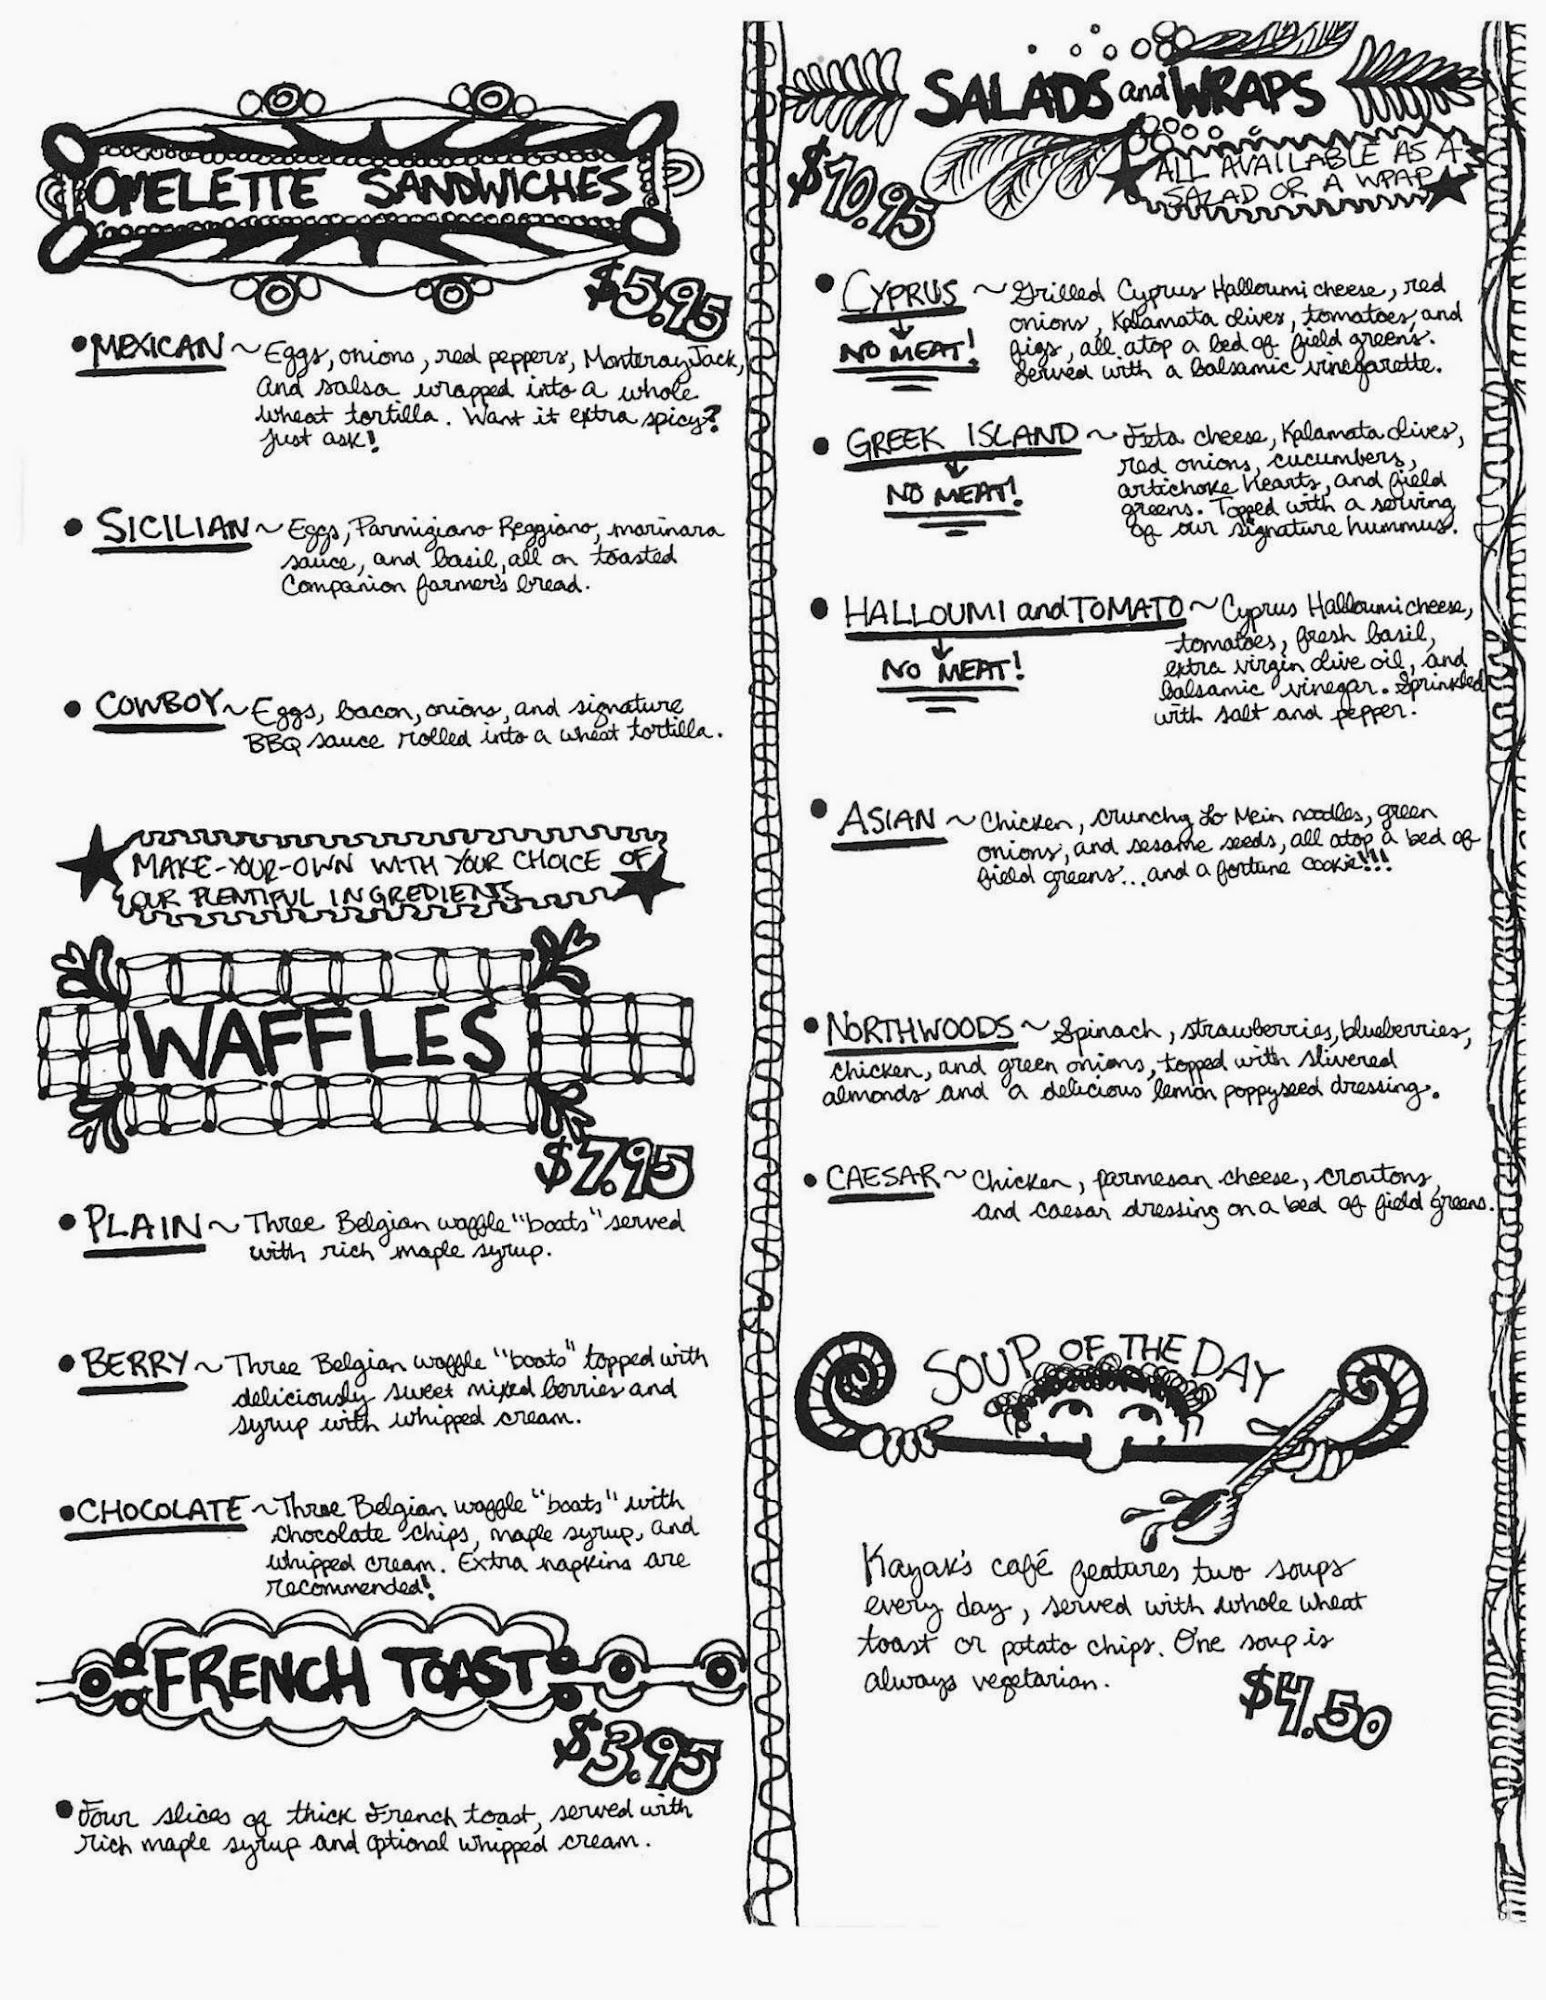 OMELETTE SANDWICHES
$5.95
• MEXICAN ~ Eggs, onions, red peppers, Monteray Jack,
and salsa wrapped into a whole
wheat tortilla. Want it extra spicy?
Just ask!
• SICILIAN ~ Eggs, Parmigiano Reggiano, marinara
sauce, and basil, all on toasted
Companion farmer's bread.
• COWBOY ~ Eggs, bacon, onions, and signature
BBQ sauce rolled into a wheat tortilla.
MAKE-YOUR-OWN WITH YOUR CHOICE OF
OUR PLENTIFUL INGREDIENTS
WAFFLES
$7.95
• PLAIN ~ Three Belgian waffle "boats" served
with rich maple syrup.
• BERRY ~ Three Belgian waffle "boats" topped with
deliciously sweet mixed berries and
syrup with whipped cream.
• CHOCOLATE ~ Three Belgian waffle "boats" with
chocolate chips, maple syrup, and
whipped cream. Extra napkins are
recommended!
FRENCH TOAST
$3.95
• Four slices of thick French toast, served with
rich maple syrup and optional whipped cream.
SALADS and WRAPS
$10.95
ALL AVAILABLE AS A
SALAD OR A WRAP
• CYPRUS ~ Grilled Cyprus Halloumi cheese, red
onions, Kalamata olives, tomatoes, and
NO MEAT! figs, all atop a bed of field greens.
Served with a balsamic vinegarette.
• GREEK ISLAND ~ Feta cheese, Kalamata olives,
red onions, cucumbers,
NO MEAT! artichoke hearts, and field
greens. Topped with a serving
of our signature hummus.
• HALLOUMI and TOMATO ~ Cyprus Halloumi cheese,
tomatoes, fresh basil,
NO MEAT! extra virgin olive oil, and
balsamic vinegar. Sprinkled
with salt and pepper.
• ASIAN ~ Chicken, crunchy Lo Mein noodles, green
onions, and sesame seeds, all atop a bed of
field greens...and a fortune cookie!!!
• NORTHWOODS ~ Spinach, strawberries, blueberries,
chicken, and green onions, topped with slivered
almonds and a delicious lemon poppyseed dressing.
• CAESAR ~ Chicken, parmesan cheese, croutons,
and caesar dressing on a bed of field greens.
SOUP OF THE DAY
Kayak's café features two soups
every day, served with whole wheat
toast or potato chips. One soup is
always vegetarian.
$4.50